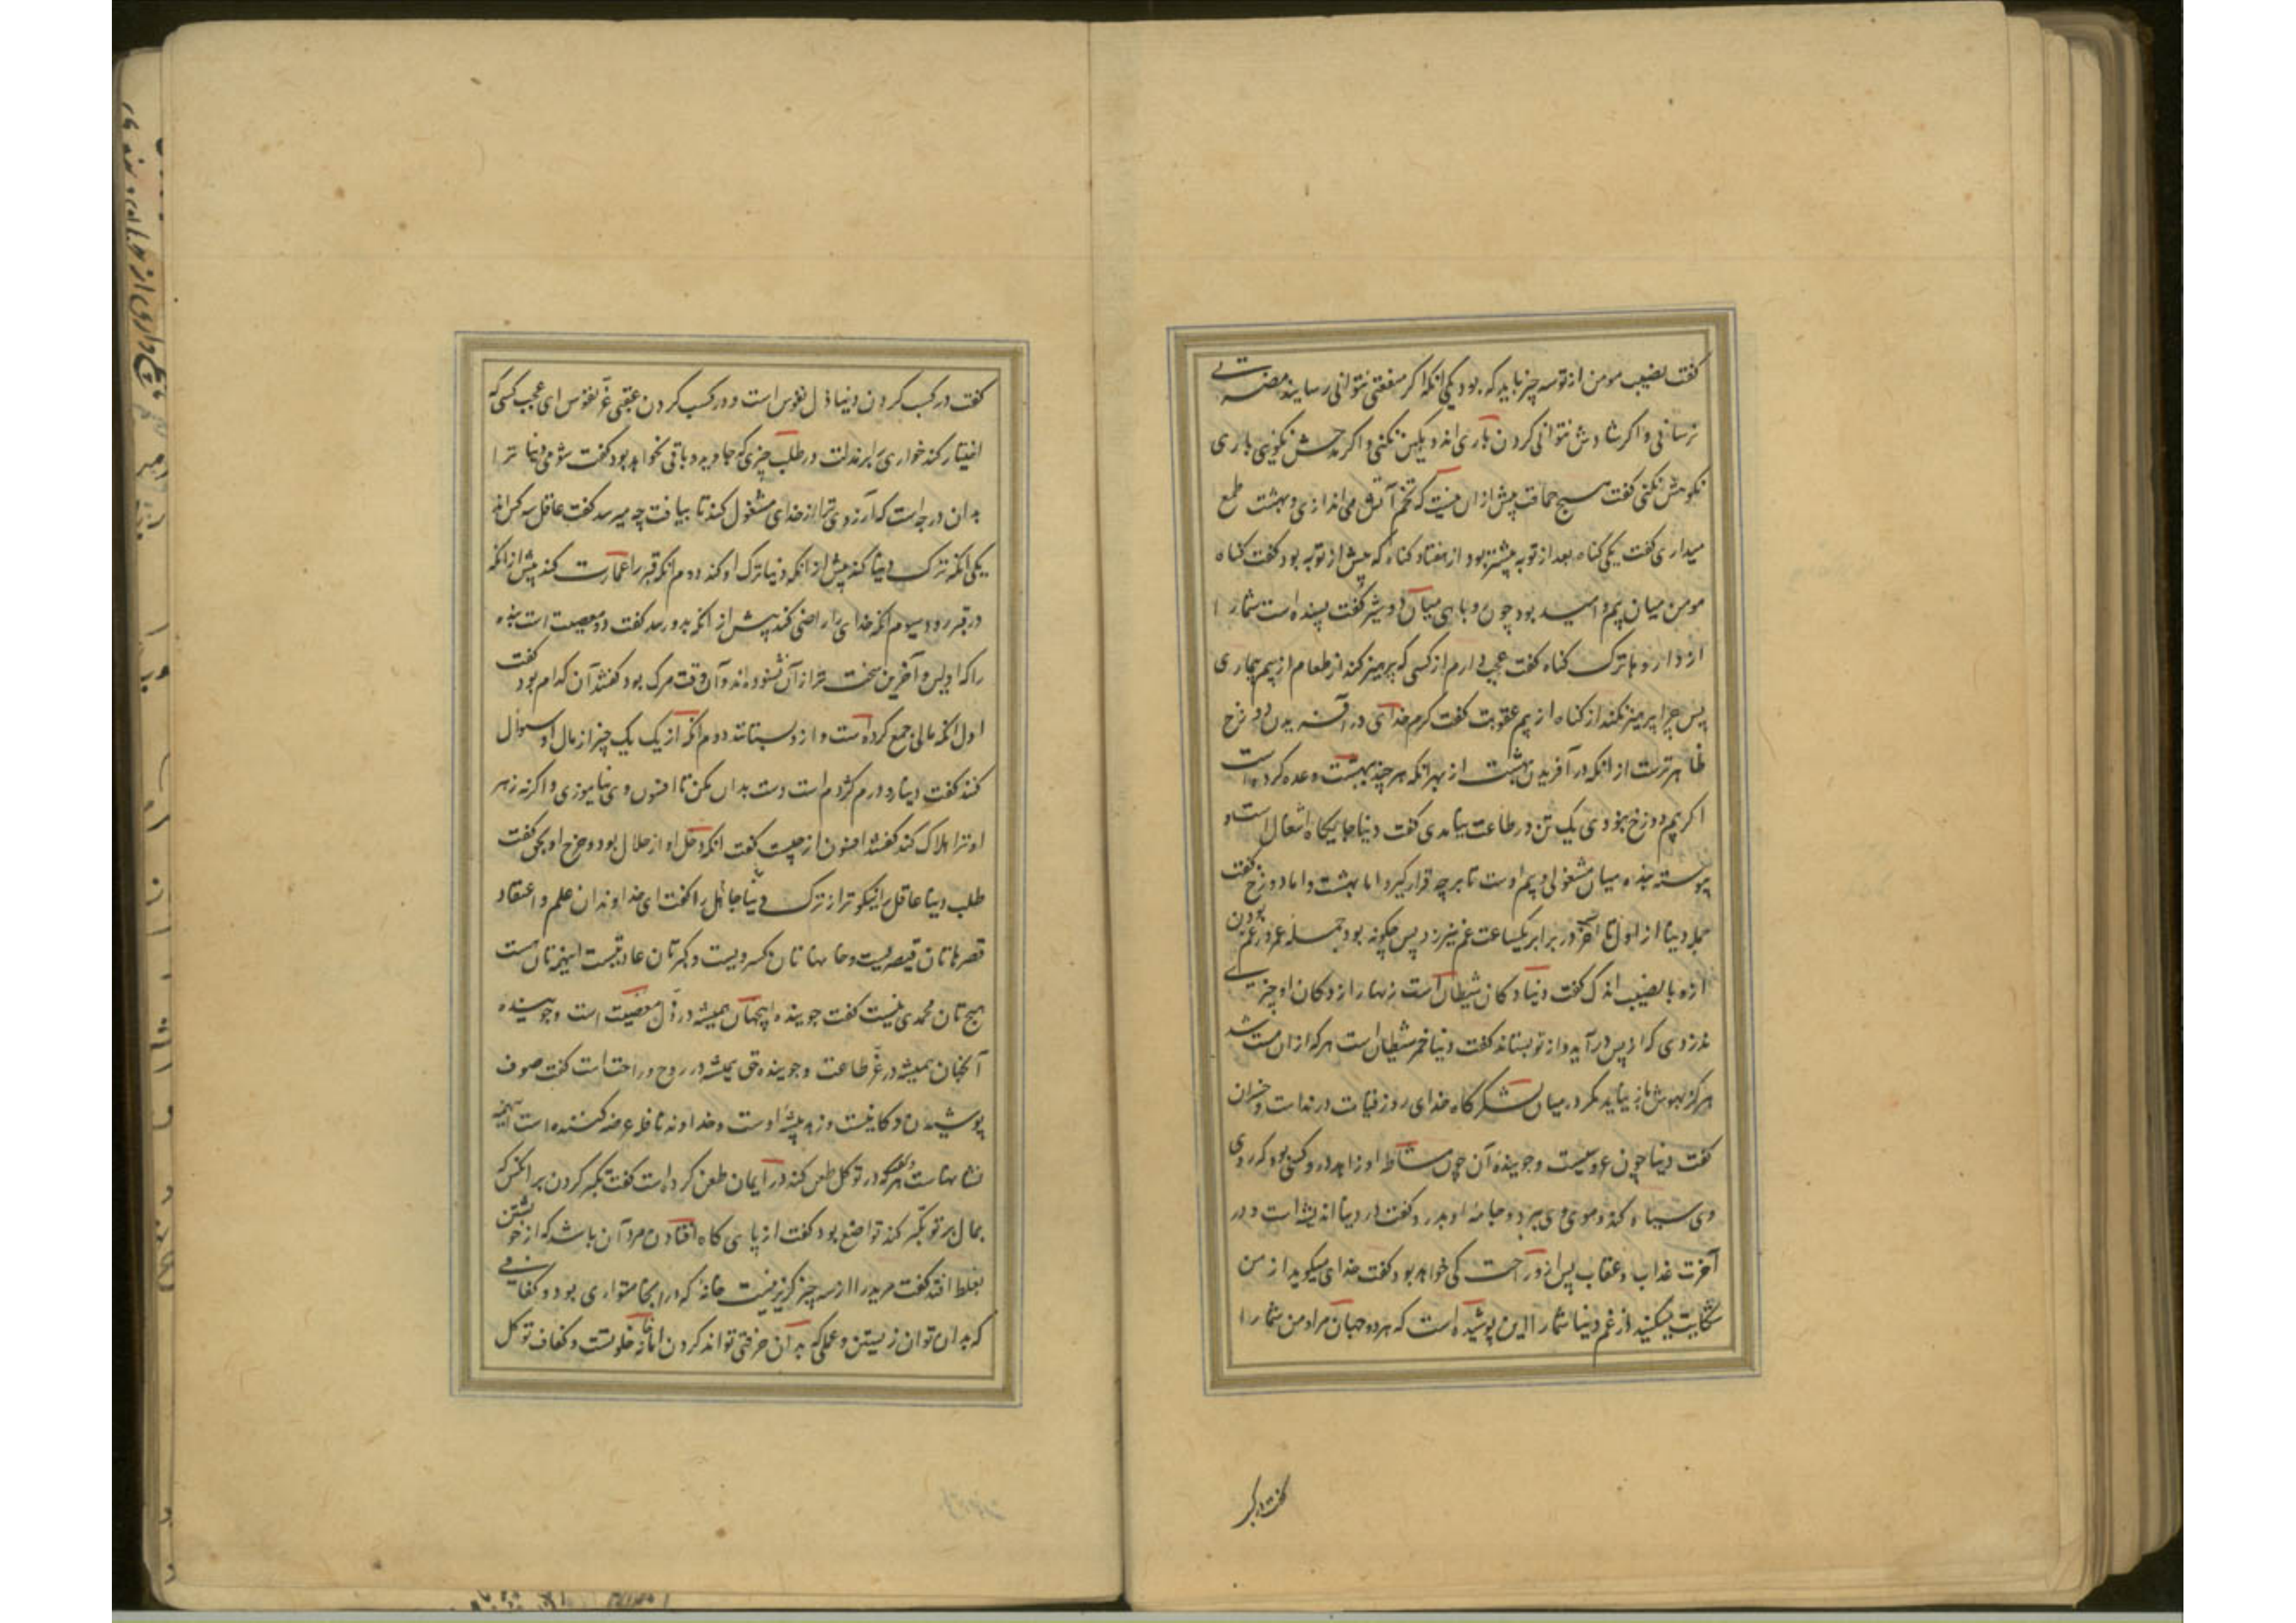 گفت نصیب مومن از تو سه چیز باید که بود یکی انکه اگر منفعتی نتوانی رسانید مضرتی
نرسانی و اگر شادش نتوانی کردن باری اندوهگین نکنی و اگر مدحش نگوئی باری
نکوهش نکنی گفت هیچ حماقت بیش از ان نیست که تخم آتش می اندازی و بهشت طمع
میداری گفت یکی گناه بعد از توبه بیشتر بود از هفتاد گناه که پیش از توبه بود گفت گناه
مومن میان بیم و امید بود چون روباهی میان دو شیر گفت بسنده است شما را
از داروها ترک گناه گفت عجب دارم از کسی که پرهیز کند از طعام از بیم بیماری
پس چرا پرهیز نکند از گناه از بیم عقوبت گفت کرم خدای در آفریدن دوزخ
ظاهرترست از انکه در آفریدن بهشت از بهر انکه هر چند بهشت وعده کرده است
اگر بیم دوزخ نبودی یک تن در طاعت نیامدی گفت دنیا جایگاه اشغال است و
پیوسته بنده میان مشغولی و بیم اوست تا بر چه قرار گیرد اما بهشت و اما دوزخ گفت
جمله دنیا از اول تا آخر در برابر یکساعت غم نیرزد پس چگونه بود جمله عمر در غم بودن
ازو با نصیب اندک گفت دنیا دکان شیطان است زنهار از دکان او چیزی
ندزدی که از پس در آید و از تو بستاند گفت دنیا خمر شیطان است هر که از ان مست شد
هرگز بهوش باز نیاید مگر در میان لشکرگاه خدای روز قیامت در ندامت و خسران
گفت دنیا چون عروسیست و جوینده آن چون مشاطه او و زاهد در وی کسی بود که روی
وی سیاه کند و موی وی ببرد و جامه او بدرد گفت در دنیا اندیشه است و در
آخرت عذاب و عقاب پس ازو راحت کی خواهد بود گفت خدای میگوید از من
شکایت میکنید از غم دنیا شما را این پوشیده است که هر دو جهان مراد من شما را
گفت در کسب
گفت در کسب کردن دنیا ذل نفوس است و در کسب کردن عقبی عز نفوس ای عجب کسی که
اختیار کند خواری و مذلت در طلب چیزی که جاوید و باقی نخواهد بود گفت شومی دنیا ترا
بدان درجه است که آرزوی ترا از خدای مشغول کند تا بیافت چه میرسد گفت عاقل سه کس اند
یکی انکه ترک دنیا کند پیش از انکه دنیا ترک او کند دوم انکه قبر را عمارت کند پیش از انکه
در قبر رود سیوم انکه خدای را راضی کند پیش از انکه بدو رسد گفت دو مصیبت است بنده
را که اولین و آخرین سخت تر از آن نشنوده اند و آن وقت مرگ بود گفتند آن کدام بود گفت
اول انکه مالی جمع کرده است و ازو بستانند دوم انکه از یک یک چیز از مال او سوال
کنند گفت دینار و درم کژدم است دست بدان مکن تا افسون وی نیاموزی و اگر نه زهر
او ترا هلاک کند گفتند افسون او چیست گفت انکه دخل او از حلال بود و خرج او بحق گفت
طلب دنیا عاقل را نیکوتر از ترک دنیا جاهل را گفت ای خداوندان علم و اعتقاد
قصرهاتان قیصریست و خانهاتان کسرویست و کبرتان عادیست اینهمه تان هست
هیچ تان محمدی نیست گفت جوینده اینجهان همیشه در ذل معصیت است و جوینده
آنجهان همیشه در عز طاعت و جوینده حق همیشه در روح و راحت است گفت صوف
پوشیدن دکانیست و زهد پیشه اوست و خداوند نافله عرضه کننده است اینهمه
نشانهاست و گفت هر که در توکل طعن کند در ایمان طعن کرده است گفت تکبر کردن بر انکس که
بمال بر تو تکبر کند تواضع بود گفت از پای گاه افتادن مرد آن باشد که از خویشتن
بغلط افتد گفت مرید را از سه چیز گزیر نیست خانه که در انجا متواری بود و کفافی
که بدان توان زیستن و عملی که بدان حرفتی تواند کردن اما خانه خلوتست و کفاف توکل